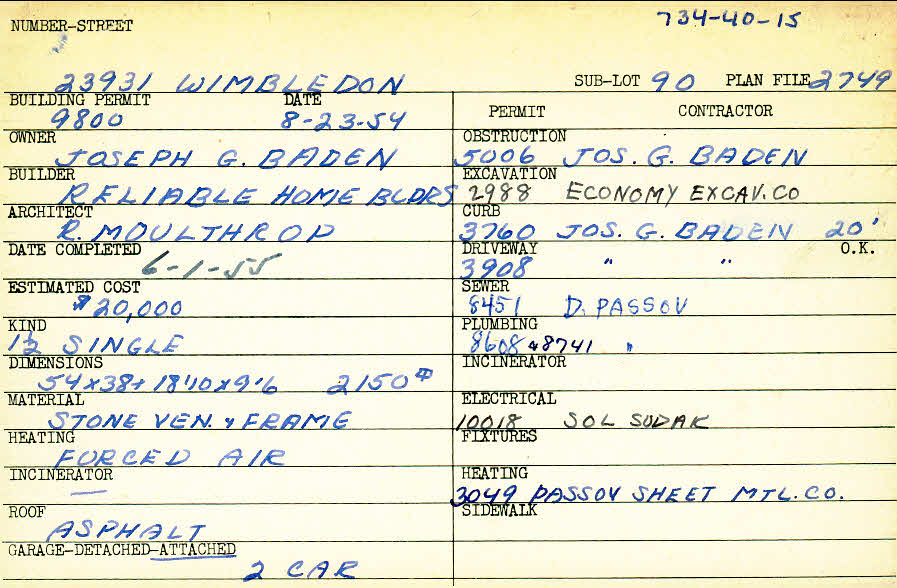 734-40-15
NUMBER-STREET
23931 WIMBLEDON SUB-LOT 90 PLAN FILE 2749
BUILDING PERMIT DATE PERMIT CONTRACTOR
9800 8-23-54
OWNER OBSTRUCTION
JOSEPH G. BADEN 5006 JOS. G. BADEN
BUILDER EXCAVATION
RELIABLE HOME BLDRS 2988 ECONOMY EXCAV. CO
ARCHITECT CURB
R. MOULTHROP 3760 JOS. G. BADEN 20'
DATE COMPLETED DRIVEWAY O.K.
6-1-55 3908 " "
ESTIMATED COST SEWER
$20,000 8451 D. PASSOV
KIND PLUMBING
1½ SINGLE 8608 & 8741 "
DIMENSIONS INCINERATOR
54x38+ 18'10x9'6 2150
MATERIAL ELECTRICAL
STONE VEN. & FRAME 10018 SOL SUDAK
HEATING FIXTURES
FORCED AIR
INCINERATOR HEATING
— 3049 PASSOV SHEET MTL. CO.
ROOF SIDEWALK
ASPHALT
GARAGE-DETACHED-ATTACHED
2 CAR